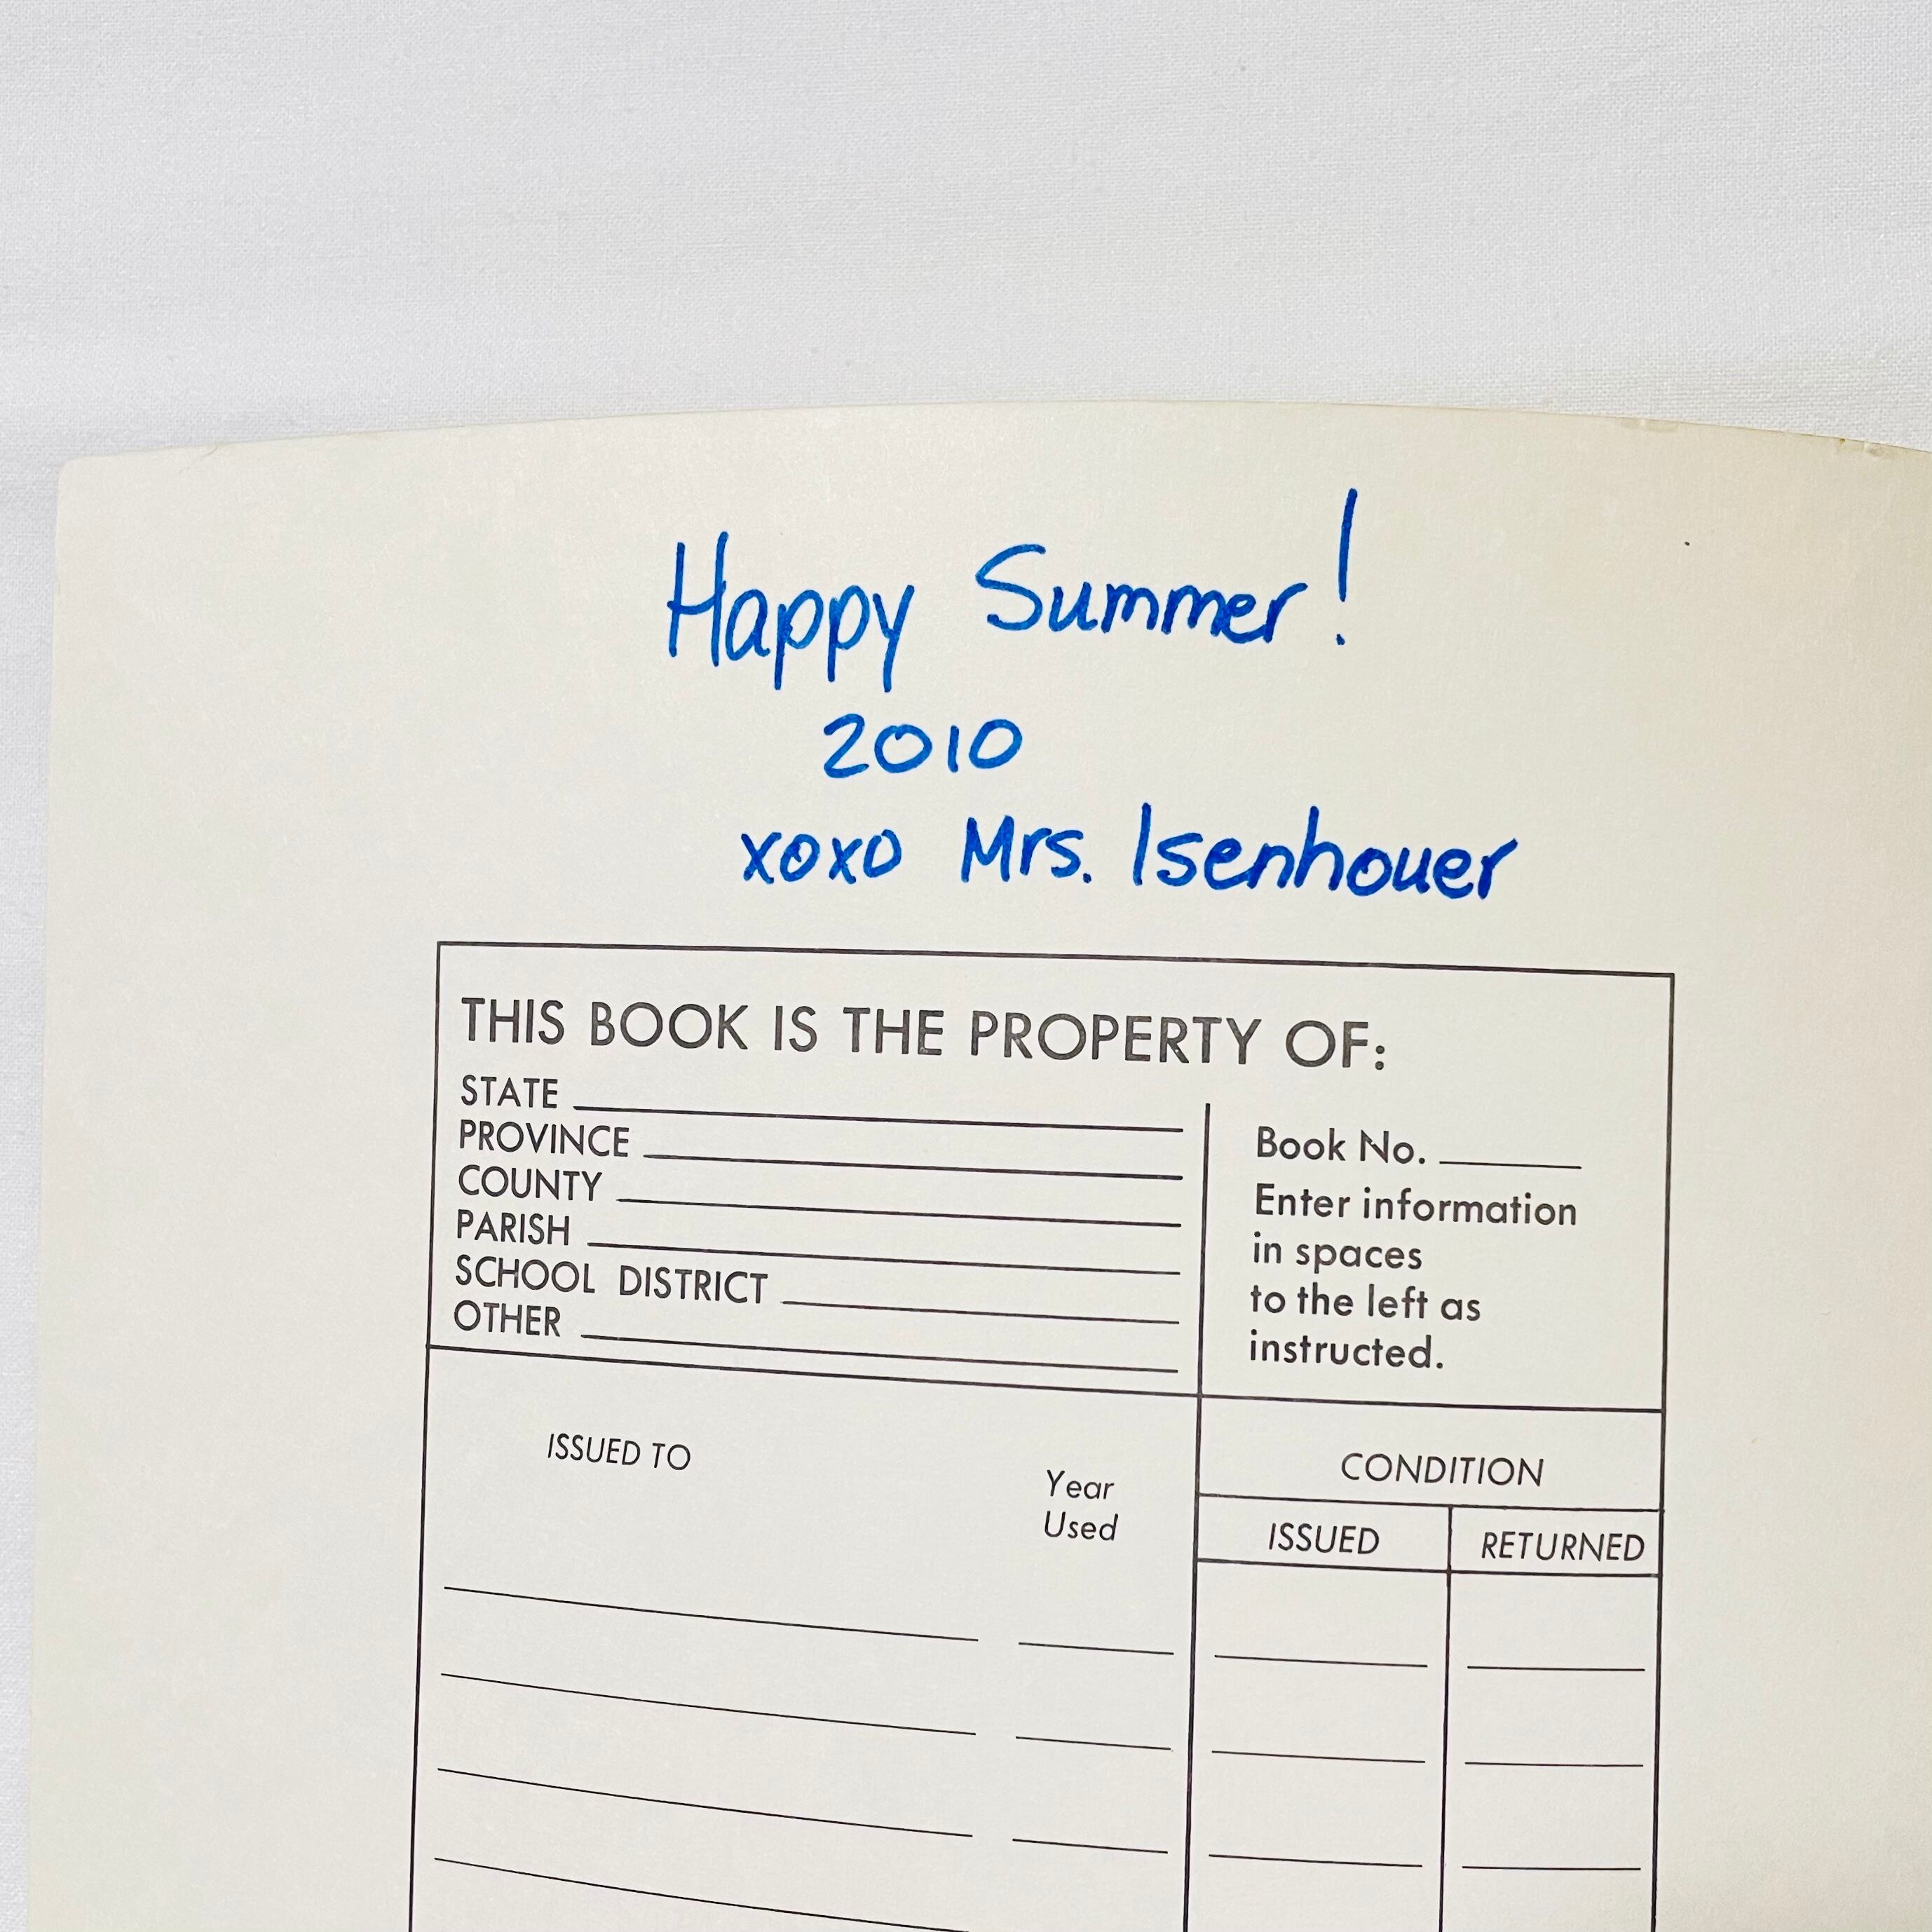 Happy Summer!
2010
xoxo Mrs. Isenhouer
THIS BOOK IS THE PROPERTY OF:
STATE
PROVINCE
COUNTY
PARISH
SCHOOL DISTRICT
OTHER
Book No.
Enter information
in spaces
to the left as
instructed.
ISSUED TO
Year
Used
CONDITION
ISSUED
RETURNED